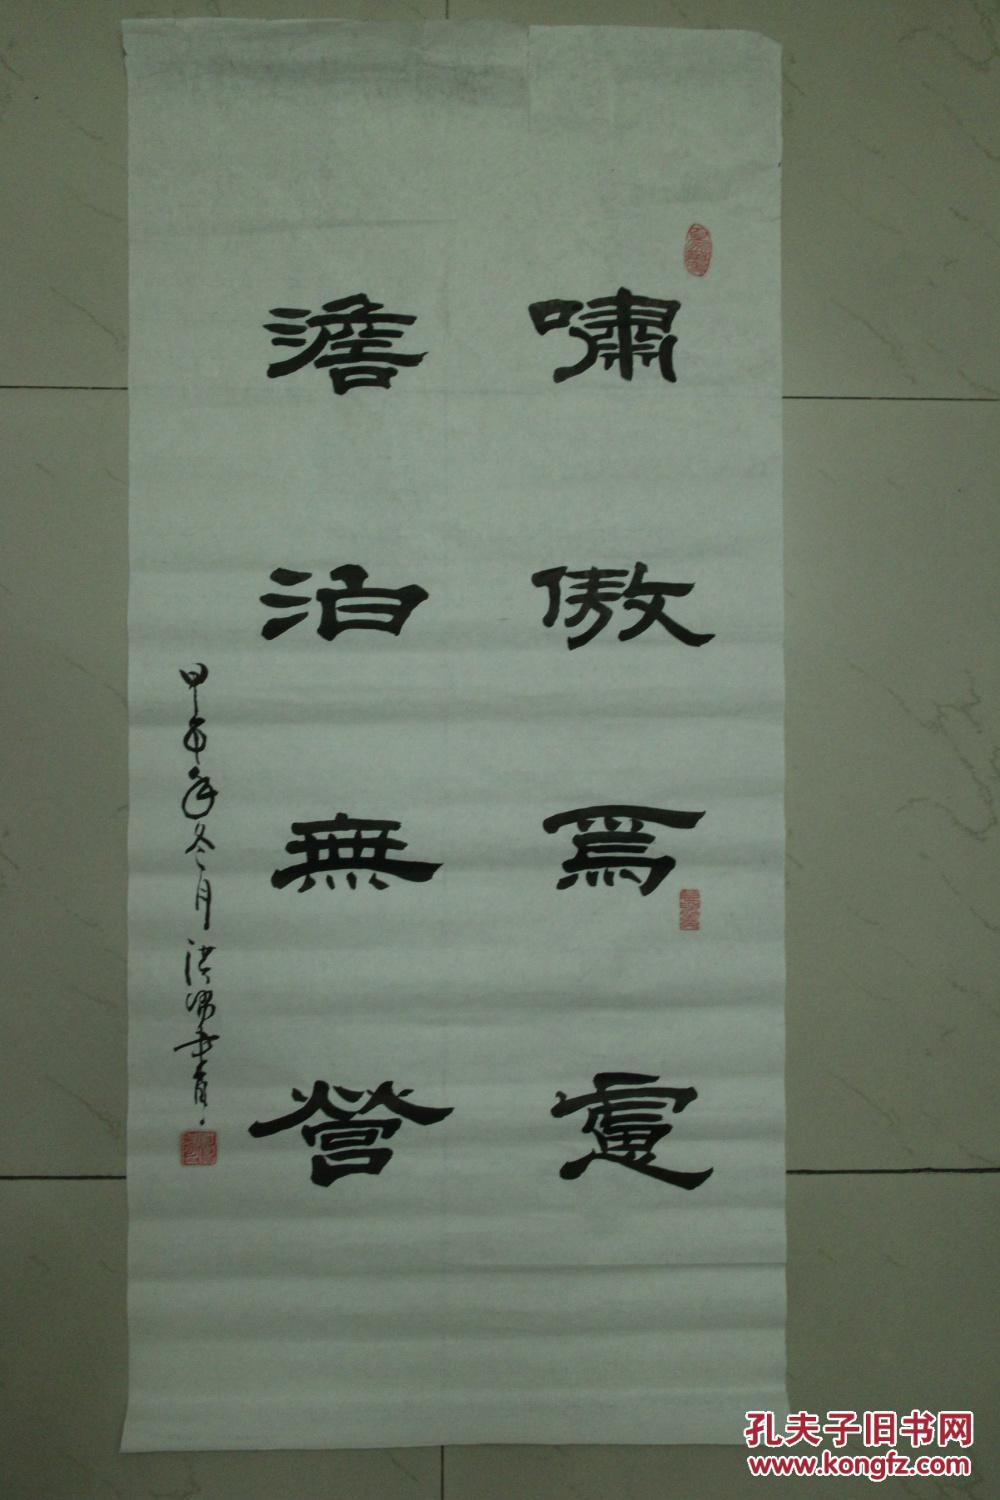 嘯傲爲慮
澹泊無營
甲午年冬月洪
孔夫子旧书网
www.kongfz.com